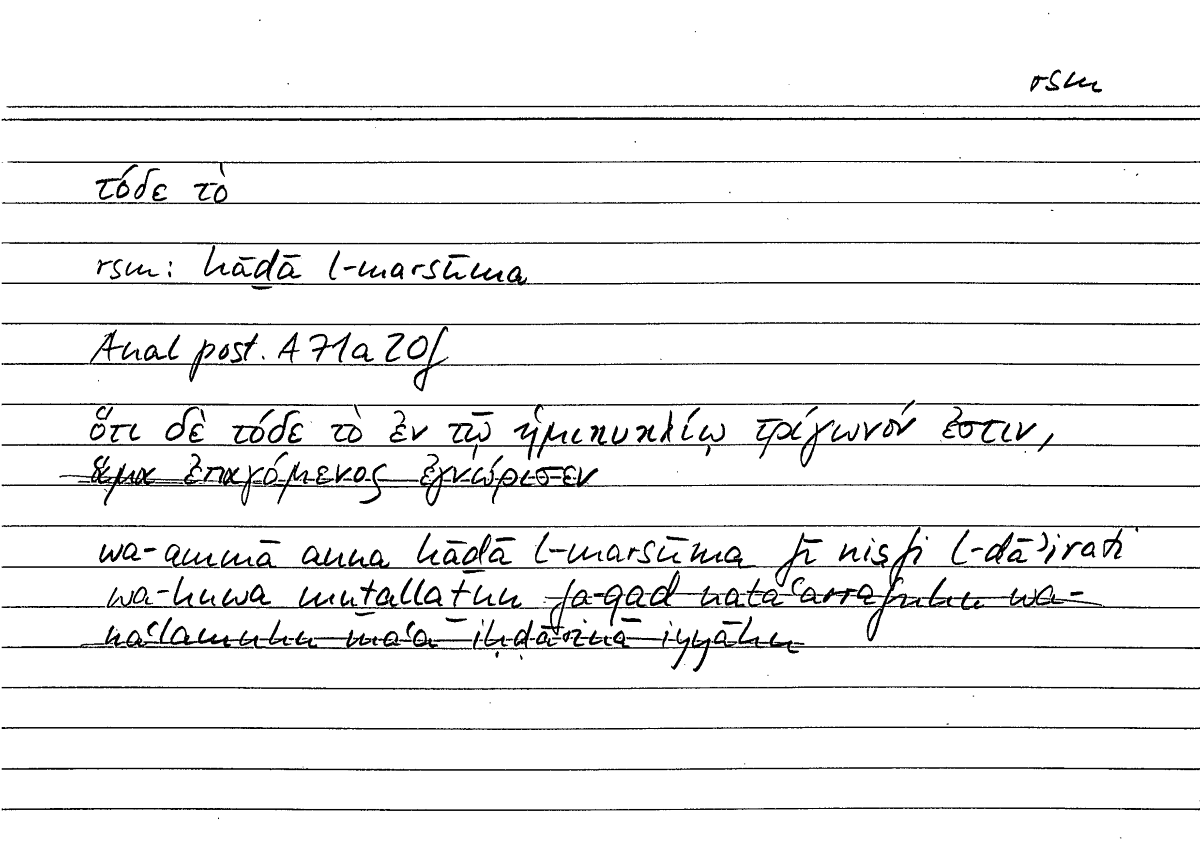 rsm
τόδε τὸ
rsm: hāḏā l-marsūma
Anal post. A 71a 20f
ὅτι δὲ τόδε τὸ ἐν τῷ ἡμικυκλίῳ τρίγωνόν ἐστιν,
ἅμα ἐπαγόμενος ἐγνώρισεν
wa-ammā anna hāḏā l-marsūma fī niṣfi l-dāʾirati
wa-huwa muṯallaṯun fa-qad nataʿarrafuhu wa-
naʿlamuhu maʿa iḥḍārinā iyyāhu